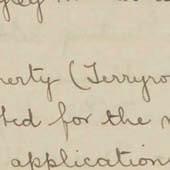 erty (Terryro
ted for the
application